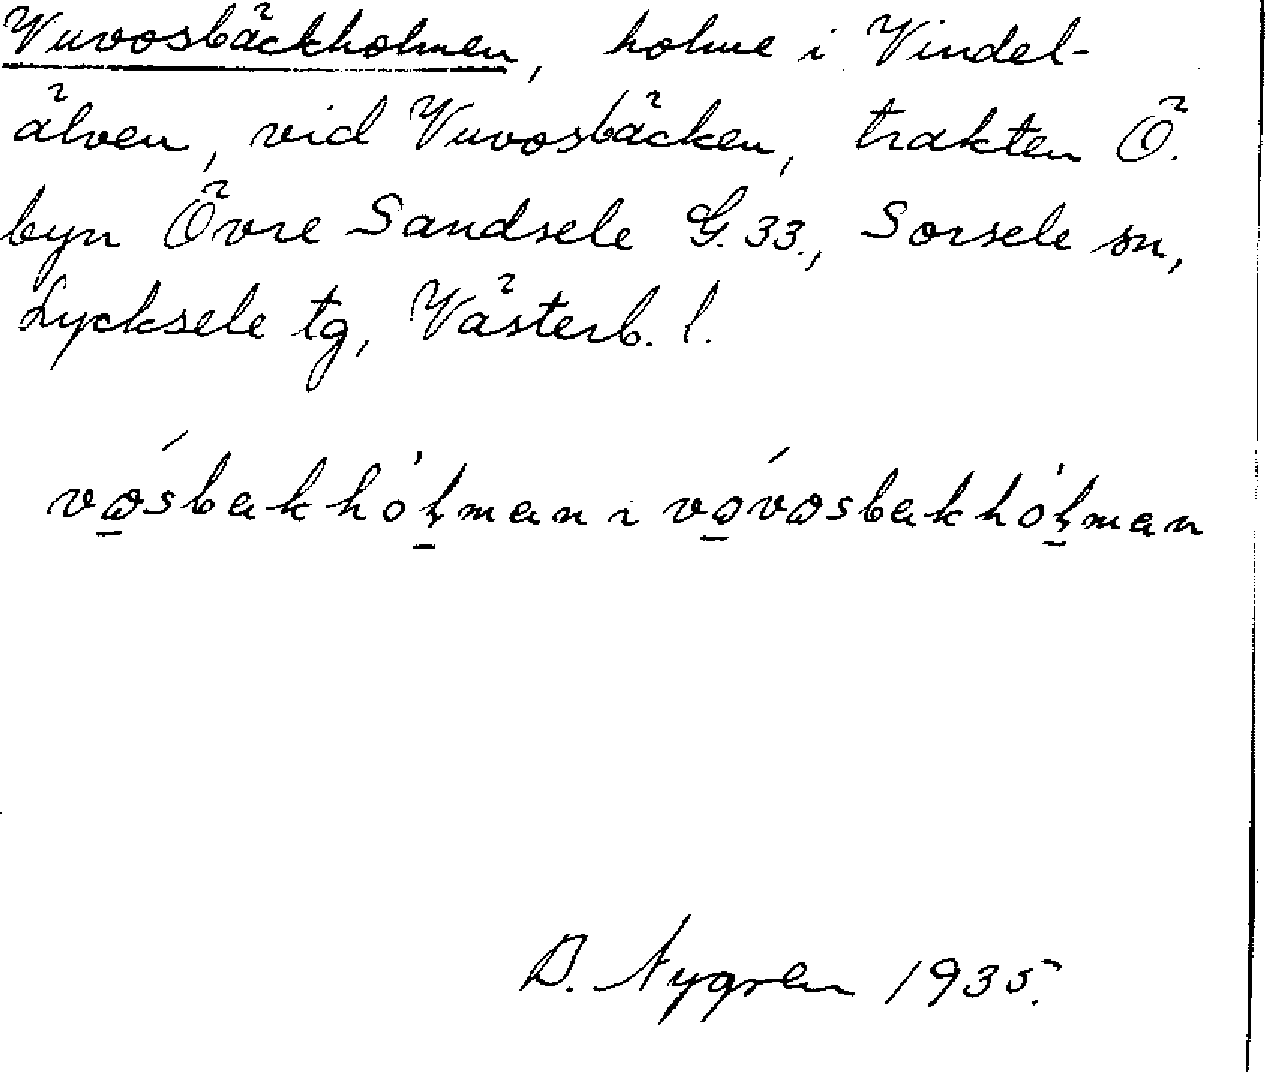 Vuvosbäckholmen, holme i Vindel-
älven, vid Vuvosbäcken, trakten Ö.
byn Övre Sandsele G. 33., Sorsele sn,
Lycksele tg, Västerb. l.
vo̱sbakhó̱ḷman ı vo̱vosbakhó̱ḷman
D. Nygren 1935.